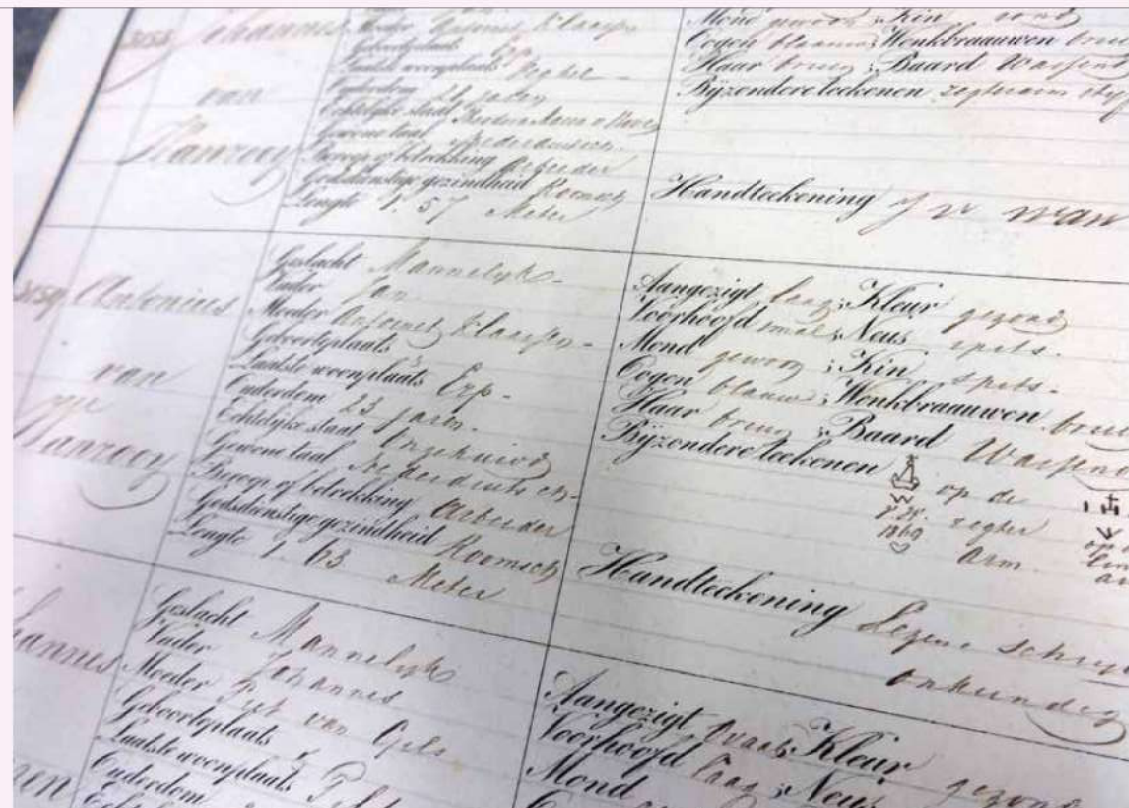 3158 Johannes
van
Hanrooy
Moeder Antonius Klaassen
Geboorteplaats Erp
Laatste woonplaats Veghel -
Ouderdom 28 jaren
Echtelijke staat
Gewone taal Nederduitsch.
Beroep of betrekking Arbeider
Godsdienstige gezindheid Roomsch
Lengte 1. 57 Meter
Mond gewoon ; Kin rond
Oogen blaauw ; Wenkbraauwen bruin
Haar bruin ; Baard Wassend
Bijzondere teekenen regterarm
Handteekening J v van
3159 Antonius
van
Hanrooy
Geslacht Mannelyk -
Vader Jan
Moeder Antonet Klaassen -
Geboorteplaats "
Laatste woonplaats Erp -
Ouderdom 23 jaren.
Echtelijke staat Ongehuwd
Gewone taal Nederduitsch -
Beroep of betrekking Arbeider
Godsdienstige gezindheid Roomsch
Lengte 1 - 63 Meter
Aangezigt laag ; Kleur gezond
Voorhoofd smal ; Neus spits.
Mond gewoon ; Kin spits -
Oogen blaauw ; Wenkbraauwen bruin
Haar bruin ; Baard Wassend
Bijzondere teekenen op de
regter
1869 arm.
Handteekening Lezens Schryf
onkundig
hannes
Geslacht Mannelyk
Vader Johannes
Moeder Piet van Gels
Geboorteplaats
Laatste woonplaats
Ouderdom
Aangezigt ovaal ; Kleur gezond
Voorhoofd laag ; Neus
Mond